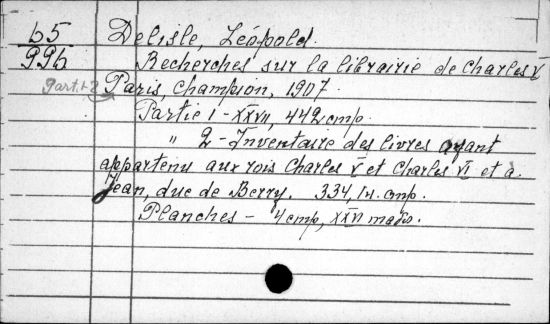 65 Delisle, Léopold.
996 Recherches sur la librairie de Charles V
Part.1-2 Paris, Champion, 1907.
Partie 1 - XXVII, 442 стр.
" 2 - Inventaire des livres ayant
appartenu aux rois Charles V et Charles VI et à
Jean, duc de Berry. 334, 1 н. стр.
Planches - 4 стр, XXVI табл.